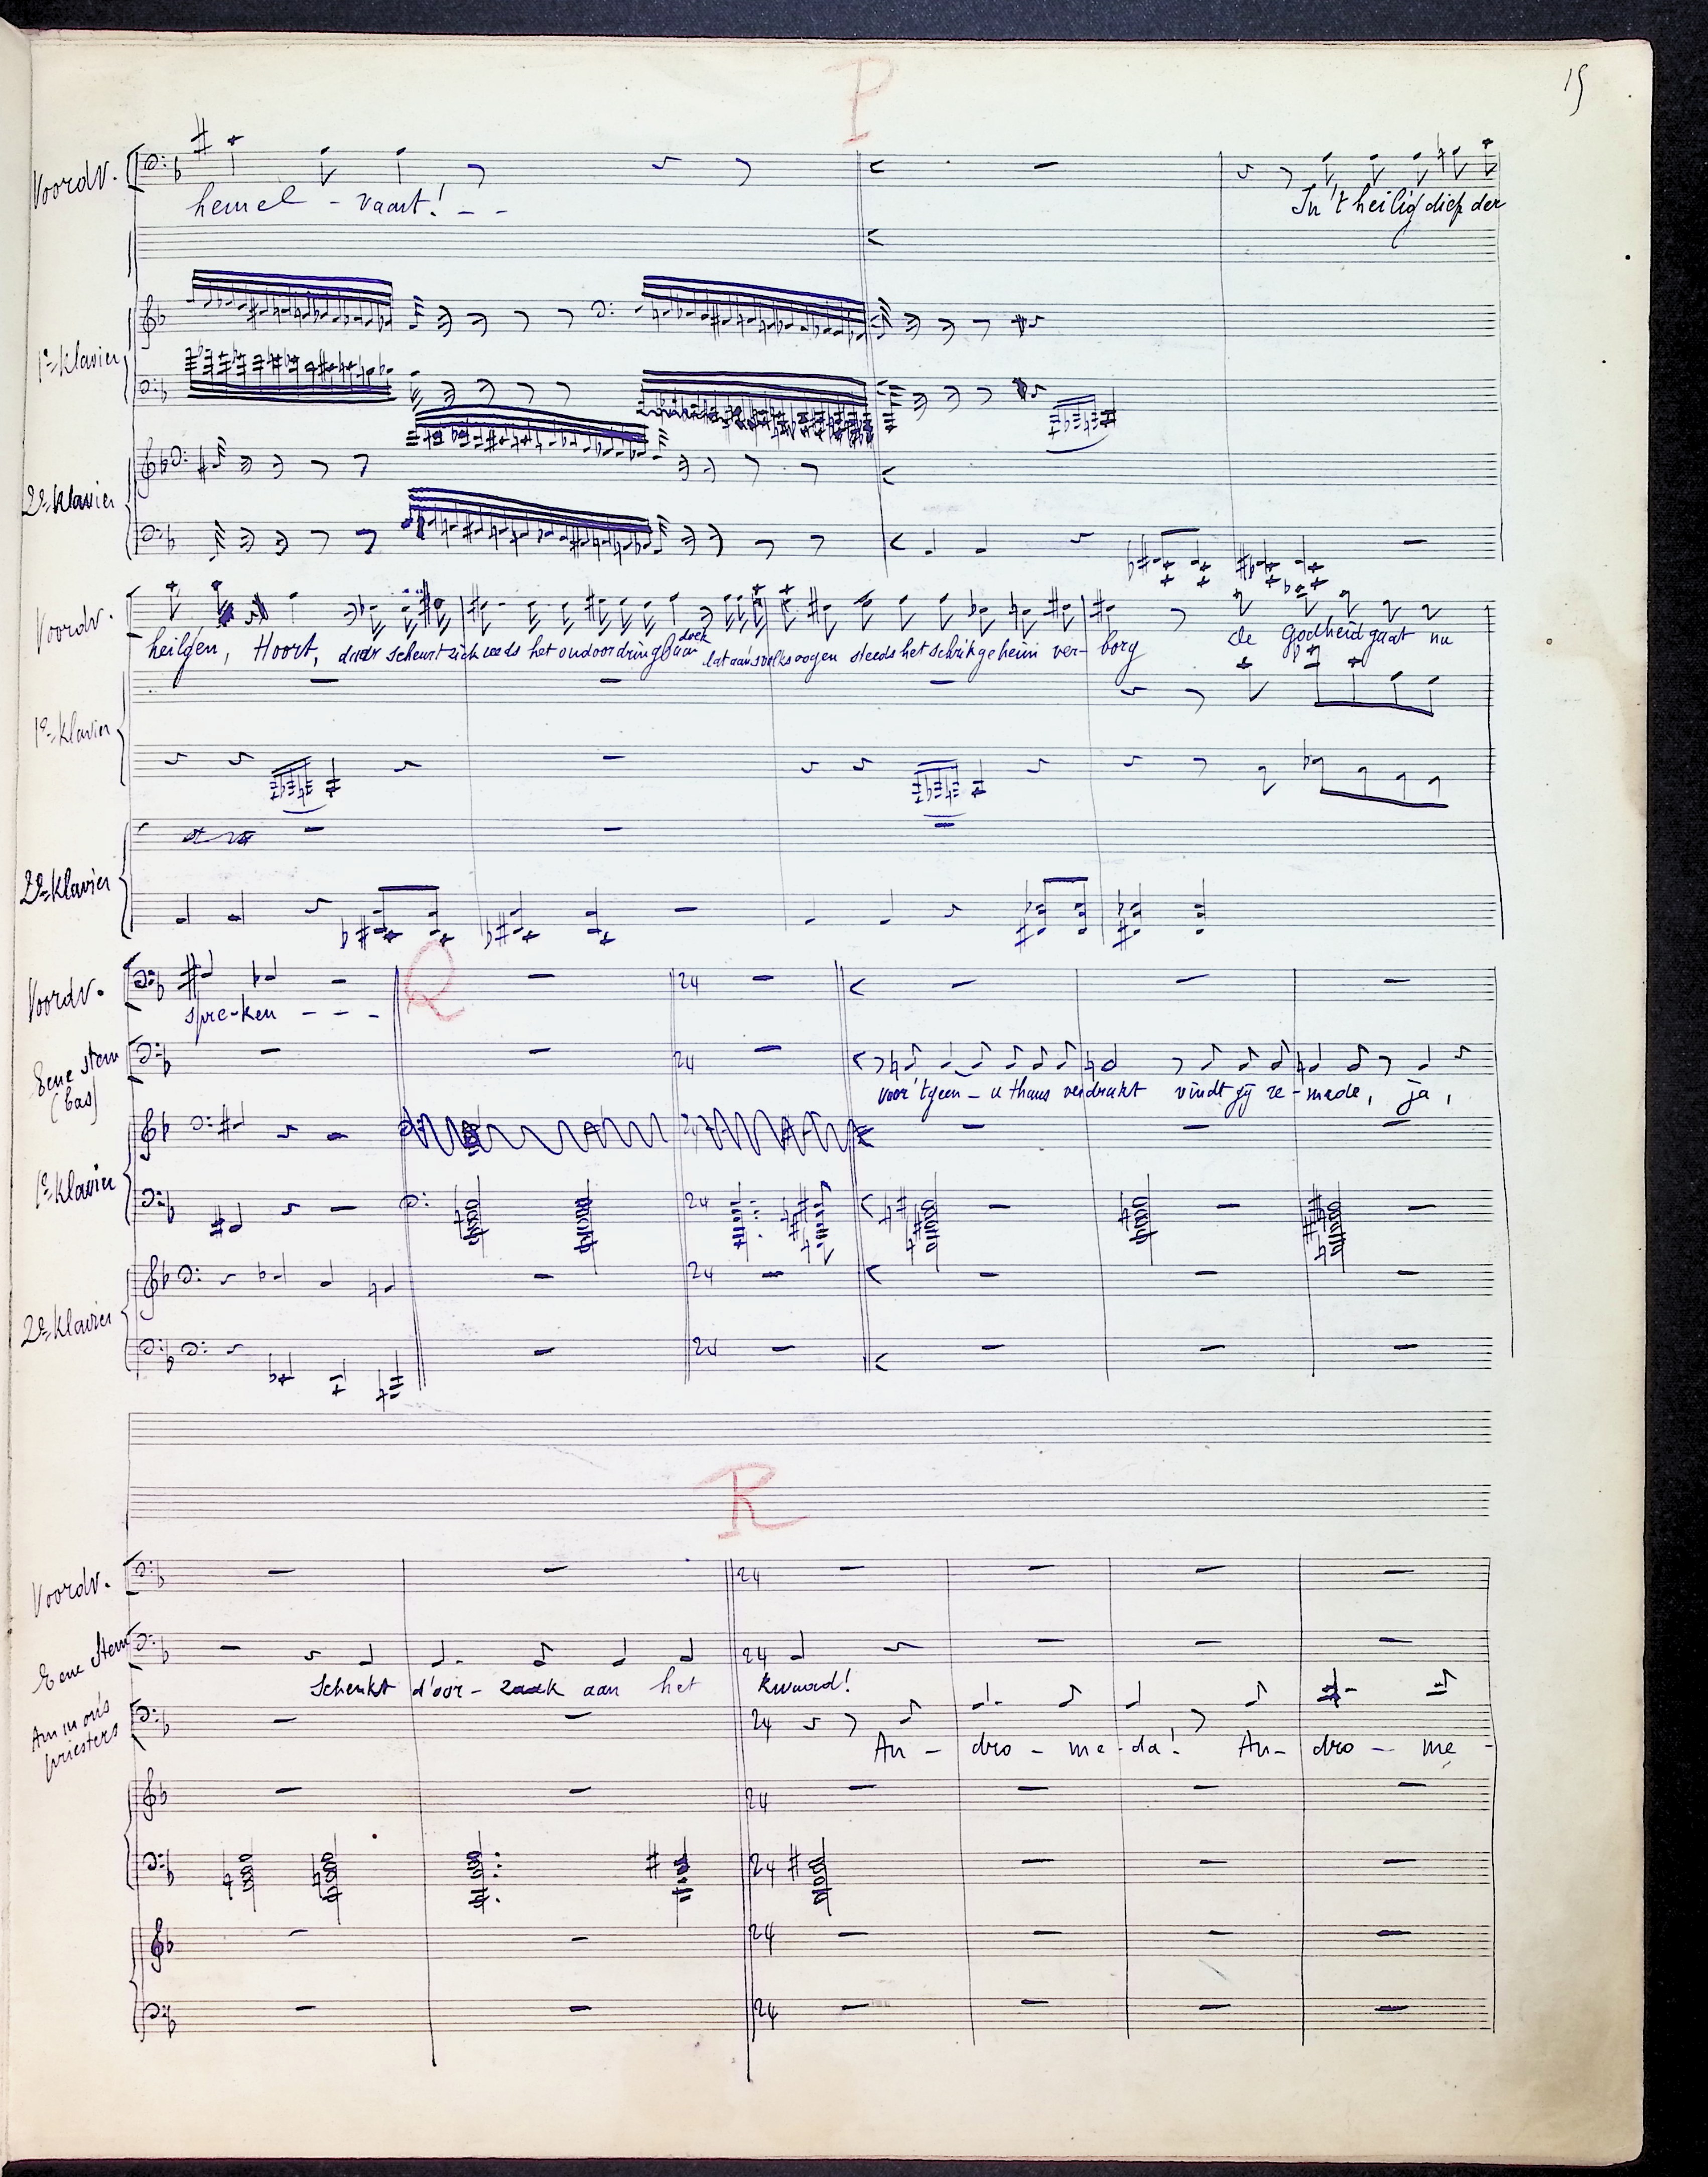 15
P
Voordr.
hemel - vaart! - -
In 't heilig diep der
1e Klavier
2e Klavier
Voordr.
heilgen, Hoort, daar scheurt zich reeds het ondoordringbaar doek dat aan 's volks oogen steeds het schrikgeheim ver- borg de godheid gaat nu
1e Klavier
2e Klavier
Q
Voordr.
spre-ken - - -
24
Eene stem
(bas)
24
voor 'tgeen - u thans verdrukt vindt gij re - mede, ja,
1e Klavier
24
24
2e Klavier
24
24
R
Voordr.
24
Eene Stem
24
Schenkt d'oor - zaak aan het kwaad!
Ammon's
priesters
24
An - dro - me - da! An - dro - me -
24
24
24
24